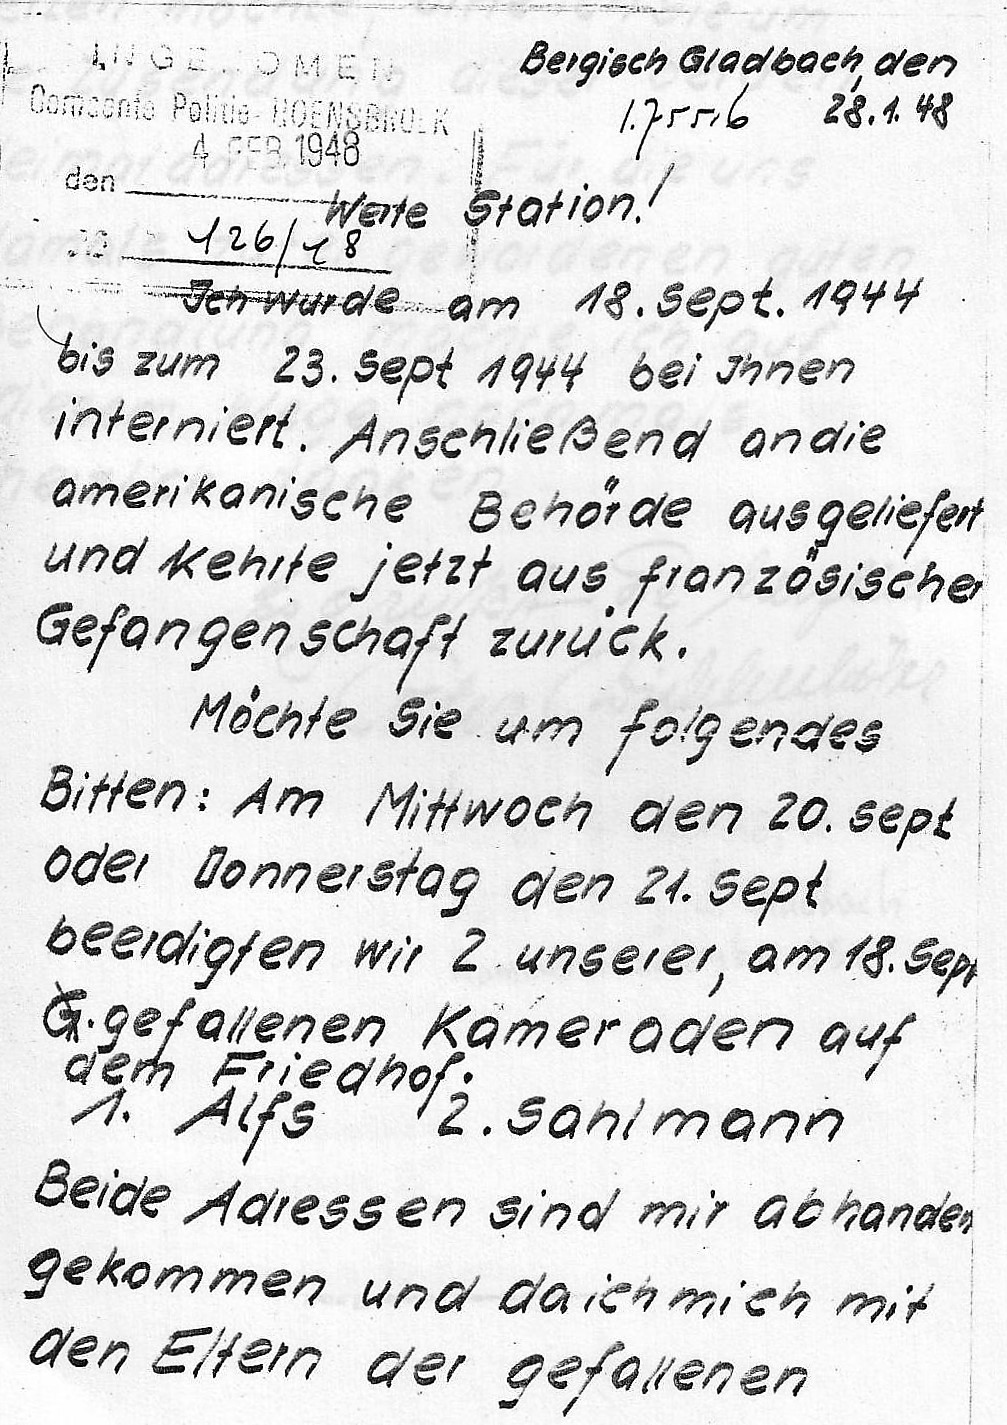 INGEKOMEN
Gemeente Politie HOENSBROEK
4 FEB. 1948
den
126/18
Bergisch Gladbach, den
28.1.48
Werte Station!
Ich wurde am 18. Sept. 1944
bis zum 23. Sept 1944 bei Ihnen
interniert. Anschließend an die
amerikanische Behörde ausgeliefert
und kehrte jetzt aus französischer
Gefangenschaft zurück.
Möchte Sie um folgendes
Bitten: Am Mittwoch den 20. Sept
oder Donnerstag den 21. Sept
beerdigten wir 2 unserer, am 18. Sept
G. gefallenen Kameraden auf
dem Friedhof.
1. Alfs 2. Sahlmann
Beide Adressen sind mir abhanden
gekommen und da ich mich mit
den Eltern der gefallenen